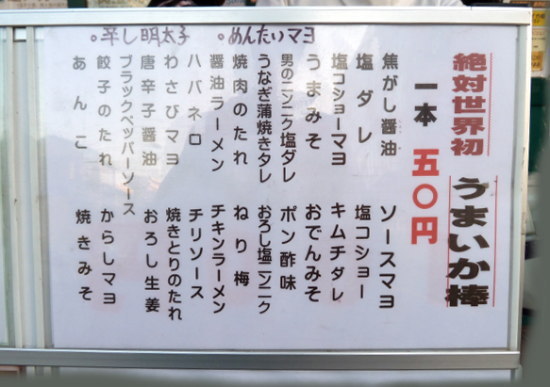 。辛し明太子 。めんたいマヨ
絶対世界初 うまいか棒
一本 五〇円
焦がし醤油 ソースマヨ
塩ダレ 塩コショー
塩コショーマヨ キムチダレ
うまみそ おでんみそ
男のニンニク塩ダレ ポン酢味
うなぎ蒲焼きタレ おろし塩ニンニク
焼肉のたれ ねり梅
醤油ラーメン チキンラーメン
ハバネロ チリソース
わさびマヨ 焼きとりのたれ
唐辛子醤油 おろし生姜
ブラックペッパーソース
餃子のたれ からしマヨ
あんこ 焼きみそ